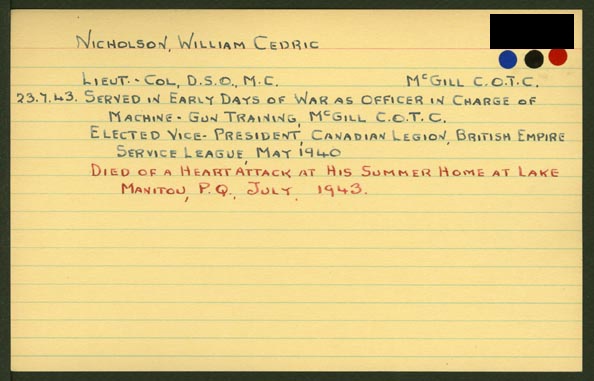 NICHOLSON, WILLIAM CEDRIC
LIEUT.-COL, D.S.O., M.C. McGILL C.O.T.C.
23.7.43. SERVED IN EARLY DAYS OF WAR AS OFFICER IN CHARGE OF
MACHINE-GUN TRAINING, McGILL C.O.T.C.
ELECTED VICE-PRESIDENT, CANADIAN LEGION, BRITISH EMPIRE
SERVICE LEAGUE, MAY 1940
DIED OF A HEART ATTACK AT HIS SUMMER HOME AT LAKE
MANITOU, P.Q., JULY, 1943.